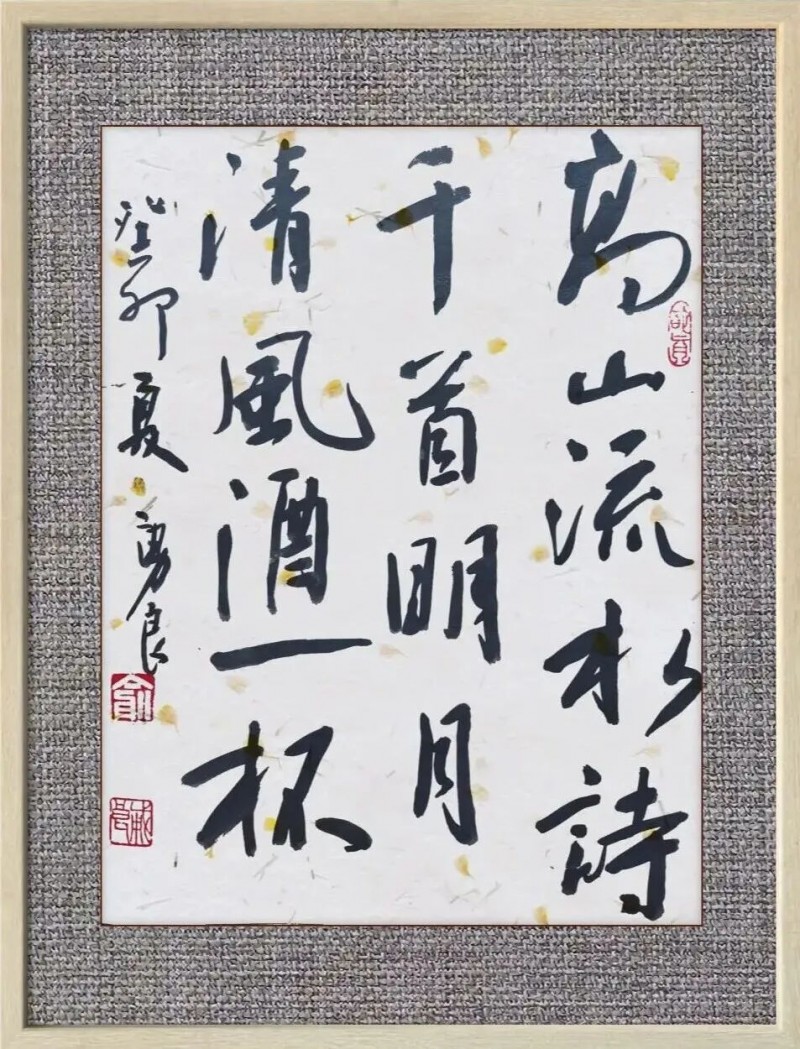 高山流水詩
千首明月
清風酒一杯
癸卯夏 勇良
俞